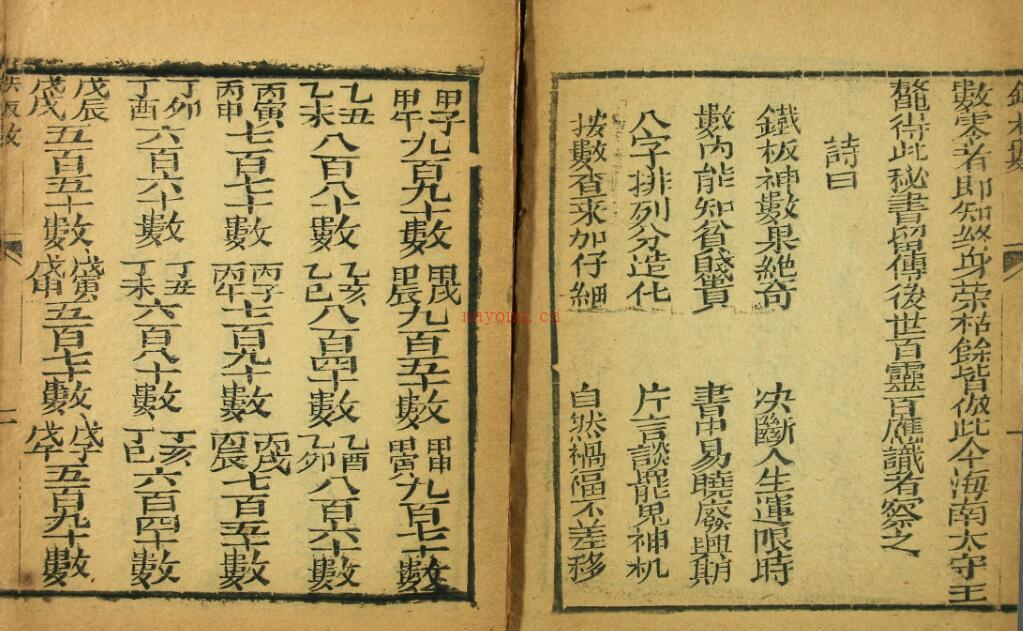 數零者即知終身荣枯餘皆倣此今海南太守王
鰲得此秘書留傳後世百靈百應識者察之
詩曰
鐵板神數果絶奇 决斷人生運限時
數內能知貧賤貴 書中易曉廢興期
八字排列分造化 片言談罷見神机
按數查来加仔細 自然禍福不差移
甲子甲午九百九十數 甲戌甲辰九百五十數 甲申甲寅九百七十數
乙丑乙未八百八十數 乙亥乙巳八百四十數 乙酉乙卯八百六十數
丙寅丙申七百七十數 丙子丙午七百九十數 丙戌丙辰七百五十數
丁夘丁酉六百六十數 丁丑丁未六百八十數 丁亥丁巳六百四十數
戊辰戊戌五百五十數 戊寅戊申五百七十數 戊子戊午五百九十數
nayona.cn